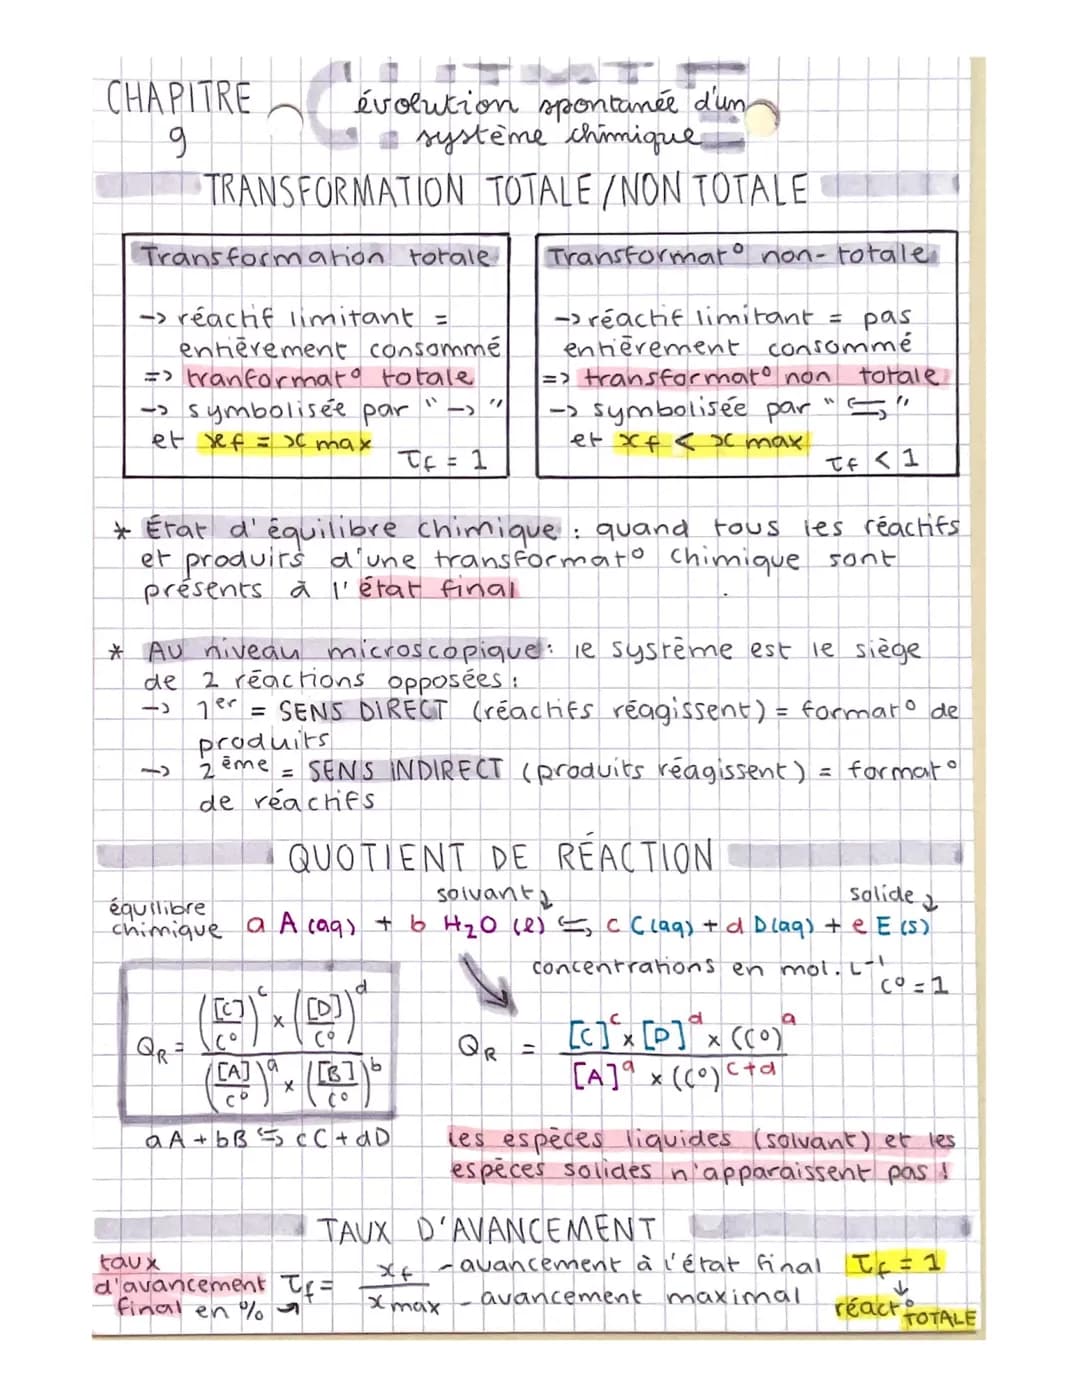 CHIMIE
CHAPITRE 9
évolution spontanée d'un
système chimique
TRANSFORMATION TOTALE / NON TOTALE
Transformation totale
-> réactif limitant =
entièrement consommé
=> tranformat° totale
-> symbolisée par "->"
et xf = x max
τf = 1
Transformat° non-totale
-> réactif limitant = pas
entièrement consommé
=> transformat° non totale
-> symbolisée par "⇌"
et xf < x max
τf < 1
* État d'équilibre chimique : quand tous les réactifs
et produits d'une transformat° chimique sont
présents à l'état final
* Au niveau microscopique : le système est le siège
de 2 réactions opposées :
-> 1er = SENS DIRECT (réactifs réagissent) = format° de
produits
-> 2ème = SENS INDIRECT (produits réagissent) = format°
de réactifs
QUOTIENT DE RÉACTION
solvant
solide
équilibre
chimique a A (aq) + b H2O (l) ⇌ c C (aq) + d D (aq) + e E (s)
concentrations en mol.L-1
C° = 1
QR = (([C]/C°)^c × ([D]/C°)^d) / (([A]/C°)^a × ([B]/C°)^b)
aA + bB ⇌ cC + dD
QR = ([C]^c × [D]^d × (C°)^a) / ([A]^a × (C°)^c+d)
les espèces liquides (solvant) et les
espèces solides n'apparaissent pas !
TAUX D'AVANCEMENT
taux
d'avancement
final en %
τf = xf / x max
- avancement à l'état final
- avancement maximal
τf = 1
réact° TOTALE